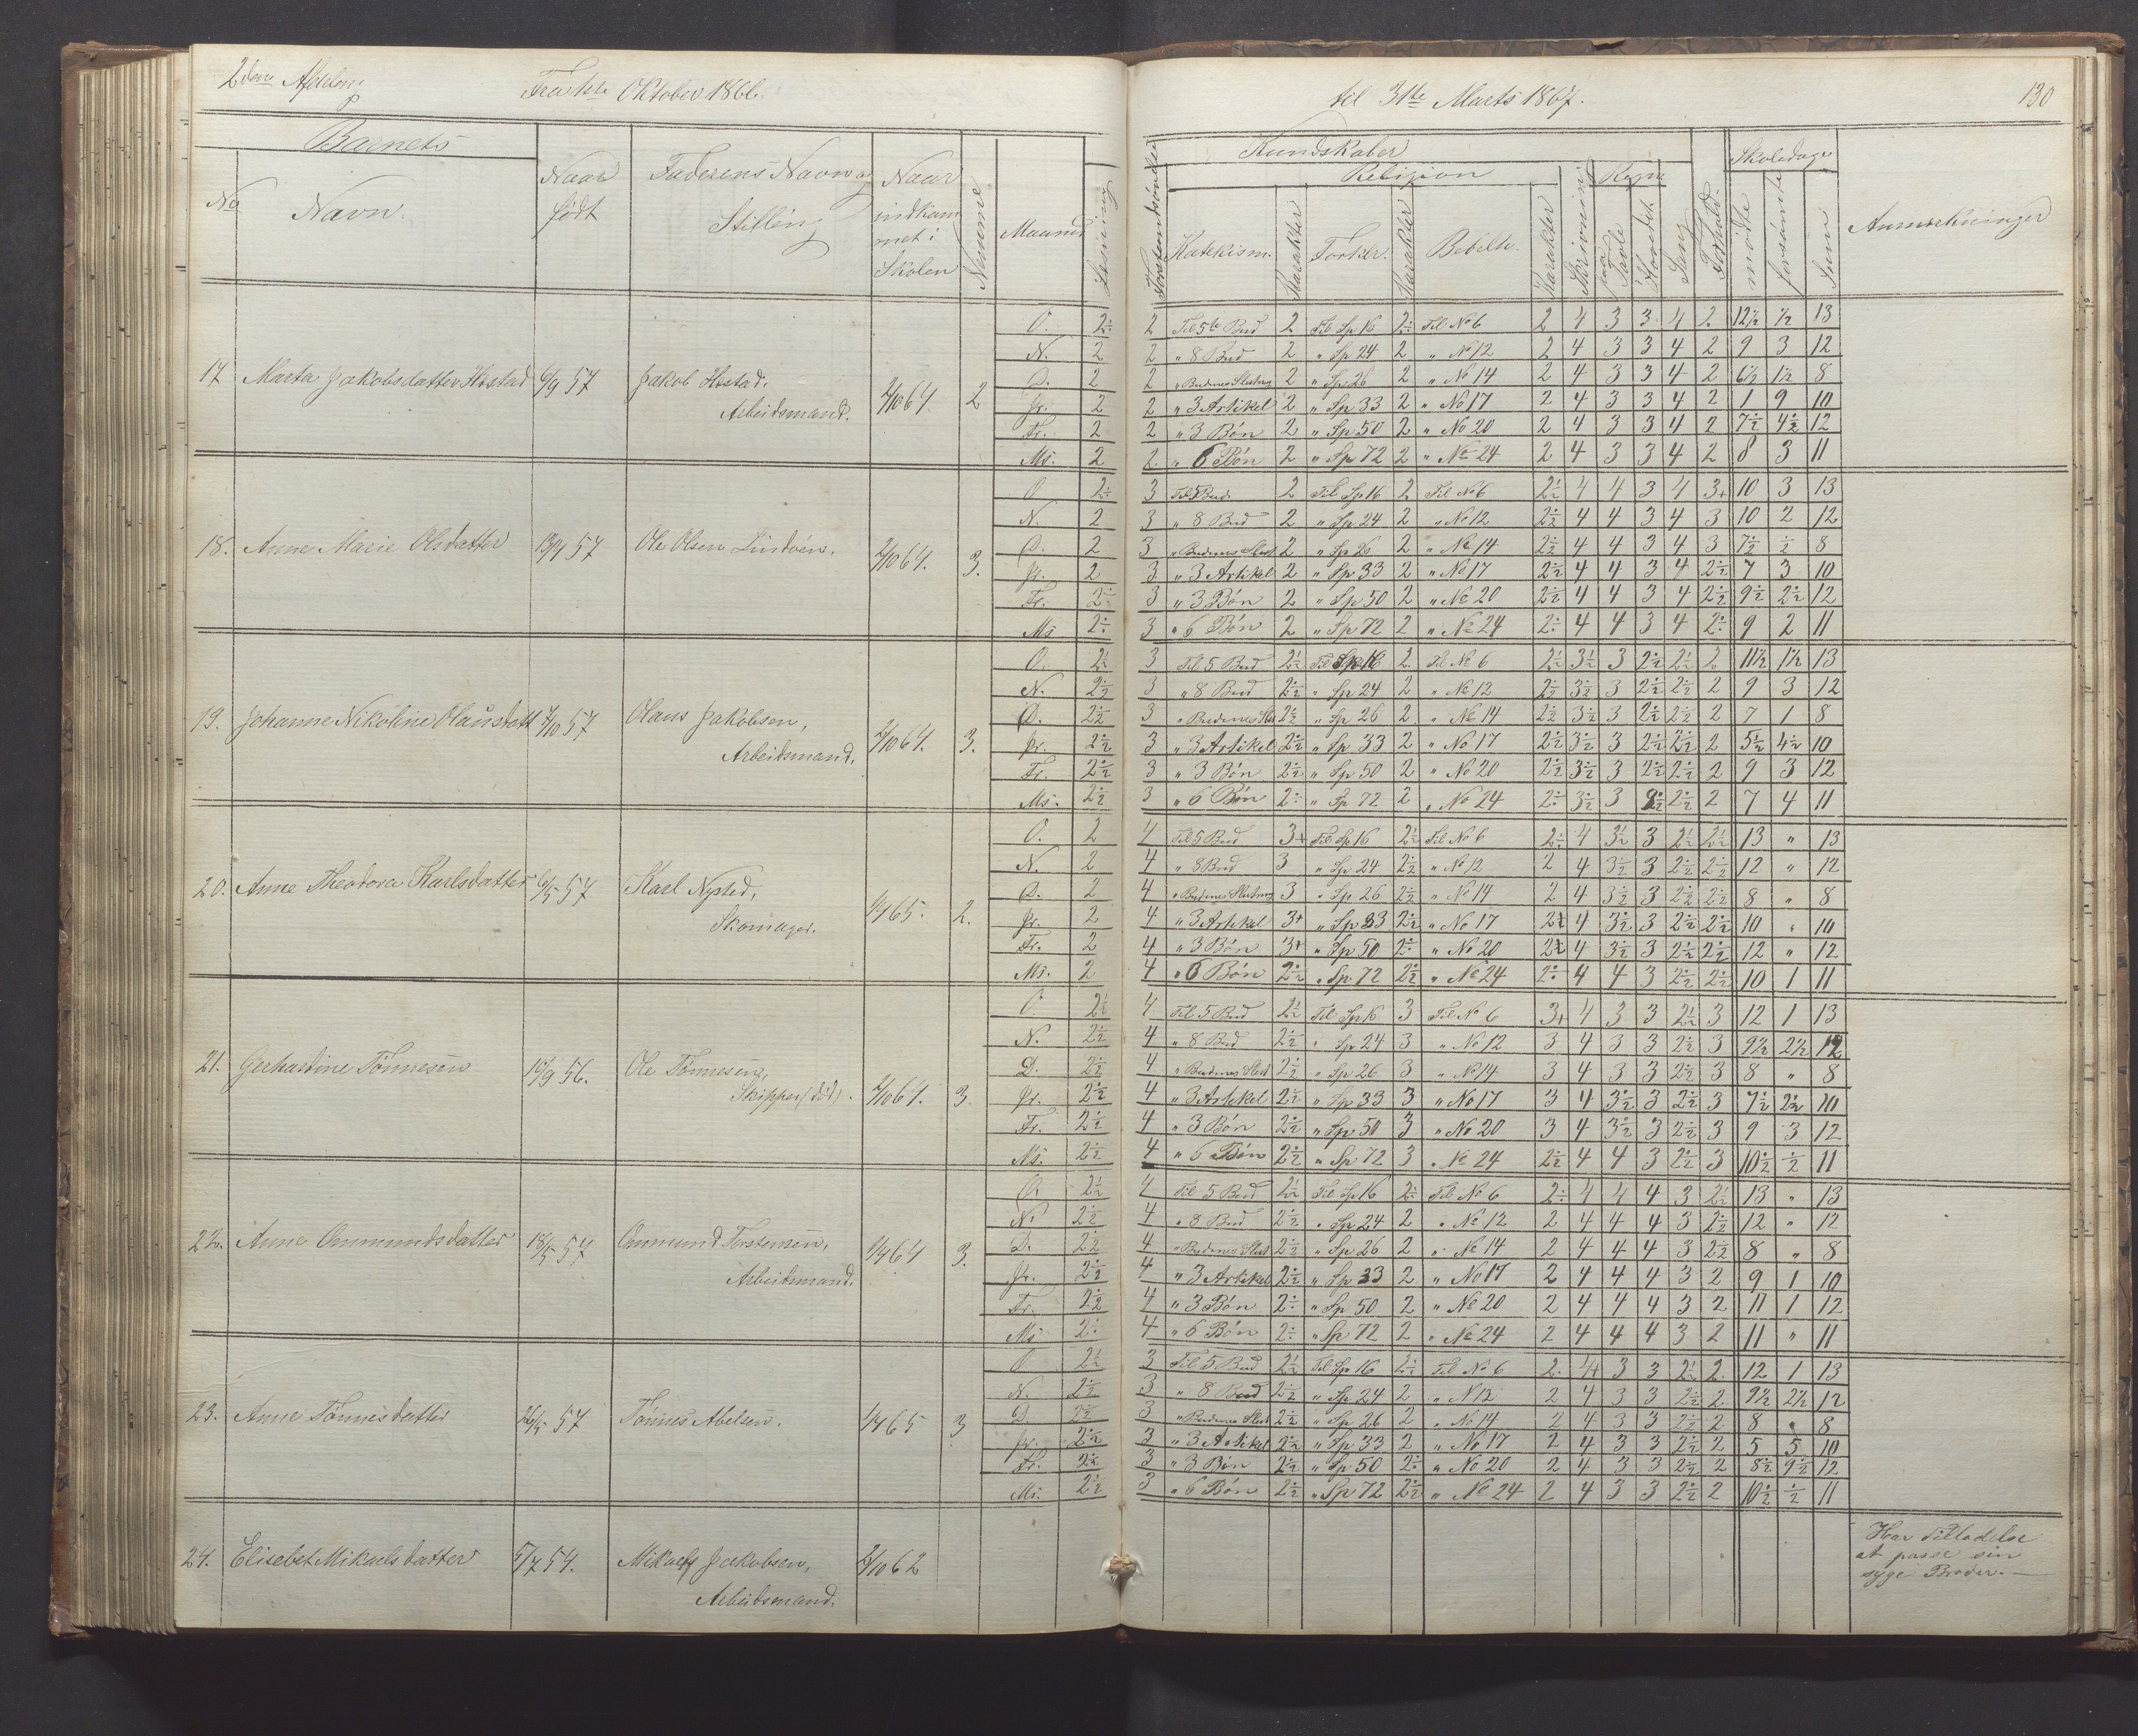 2den Afdeling
Fra 1ste Oktober 1866.
til 31te Marts 1867.
130
Barnets
No
Navn.
Naar født
Faderens Navn og Stilling
Naar indkommet i Skolen
Nemme
Maaned
Læsning
Forstandsövelser
Kundskaber
Religion
Katekism.
Karakter
Forklr.
Karakter
Bibelh.
Karakter
Skrivning
Regn
paa Tavle
i Hovedet.
Sang
Forhold
Skoledage
mödte
forsömte
Sum
Anmærkninger
17 Marta Jakobsdatter Hostad 6/9 57 Jakob Hostad, Arbeidsmand. 2/10 64. 2
O. 2÷ 2 Til 5te Bud 2 Til Sp 16 2÷ Til No 6 2 4 3 3 4 2 12½ ½ 13
N. 2 2 " 8 Bud 2 " Sp 24 2 " No 12 2 4 3 3 4 2 9 3 12
D. 2 2 " Budenes Slutning 2 " Sp 26 2 " No 14 2 4 3 3 4 2 6½ 1½ 8
Jr. 2 2 " 3 Artikel 2 " Sp 33 2 " No 17 2 4 3 3 4 2 1 9 10
Fr. 2 2 " 3 Bön 2 " Sp 50 2 " No 20 2 4 3 3 4 2 7½ 4½ 12
Ms. 2 2 " 6 Bön 2 " Sp 72 2 " No 24 2 4 3 3 4 2 8 3 11
18. Anne Marie Olsdatter 13/9 57 Ole Olsen 2/10 64. 3.
O 2÷ 3 Til 5 Bud 2 Til Sp 16 2 Til No 6 2½ 4 4 3 4 3+ 10 3 13
N. 2 3 " 8 Bud 2 " Sp 24 2 " No 12 2½ 4 4 3 4 3 10 2 12
D. 2 3 " Budenes Slut 2 " Sp 26 2 " No 14 2½ 4 4 3 4 3 7½ ½ 8
Jr. 2 3 " 3 Artikel 2 " Sp 33 2 " No 17 2½ 4 4 3 4 2½ 7 3 10
Fr. 2÷ 3 " 3 Bön 2 " Sp 50 2 " No 20 2½ 4 4 3 4 2½ 9½ 2½ 12
Ms 2÷ 3 " 6 Bön 2 " Sp 72 2 " No 24 2÷ 4 4 3 4 2÷ 9 2 11
19. Johanne Nikoline Olausdatt 7/10 57 Olaus Jakobsen, Arbeidsmand. 2/10 64. 3.
O. 2½ 3 Til 5 Bud 2½ Til Sp 16 2 Til No 6 2½ 3½ 3 2½ 2½ 2 11½ 1½ 13
N. 2½ 3 " 8 Bud 2½ " Sp 24 2 " No 12 2½ 3½ 3 2½ 2½ 2 9 3 12
D. 2½ 3 " Budenes Slut 2½ " Sp 26 2 " No 14 2½ 3½ 3 2½ 2½ 2 7 1 8
Jr. 2½ 3 " 3 Artikel 2½ " Sp 33 2 " No 17 2½ 3½ 3 2½ 2½ 2 5½ 4½ 10
Fr. 2½ 3 " 3 Bön 2½ " Sp 50 2 " No 20 2½ 3½ 3 2½ 2½ 2 9 3 12
Ms. 2½ 3 " 6 Bön 2÷ " Sp 72 2 " No 24 2÷ 3½ 3 2½ 2½ 2 7 4 11
20. Anne Theodora Karlsdatter 6/5 57 Karl Nysted, Skomager. 1/4 65. 2.
O. 2 4 Til 5 Bud 3+ Til Sp 16 2½ Til No 6 2÷ 4 3½ 3 2½ 2½ 13 " 13
N. 2 4 " 8 Bud 3 " Sp 24 2½ " No 12 2 4 3½ 3 2½ 2½ 12 " 12
D. 2 4 " Budenes Slutning 3 " Sp 26 2½ " No 14 2 4 3½ 3 2½ 2½ 8 " 8
Jr. 2 4 " 3 Artikel 3+ " Sp 33 2½ " No 17 2½ 4 3½ 3 2½ 2½ 10 " 10
Fr. 2 4 " 3 Bön 3+ " Sp 50 2÷ " No 20 2½ 4 3½ 3 2½ 2½ 12 " 12
Ms. 2 4 " 6 Bön 2½ " Sp 72 2½ " No 24 2÷ 4 4 3 2½ 2½ 10 1 11
21. Gerhardine Tönnesen 10/9 56. Ole Tönnesen, Skipper (död). 2/10 64. 3
O 2½ 4 Til 5 Bud 2½ Til Sp 16 3 Til No 6 3+ 4 3 3 2½ 3 12 1 13
N. 2½ 4 " 8 Bud 2½ " Sp 24 3 " No 12 3 4 3 3 2½ 3 9½ 2½ 12
D. 2½ 4 " Budenes Slut 2½ " Sp 26 3 " No 14 3 4 3 3 2½ 3 8 " 8
Jr. 2½ 4 " 3 Artikel 2½ " Sp 33 3 " No 17 3 4 3½ 3 2½ 3 7½ 2½ 10
Fr. 2½ 4 " 3 Bön 2½ " Sp 50 3 " No 20 3 4 3½ 3 2½ 3 9 3 12
Ms. 2½ 4 " 6 Bön 2½ " Sp 72 3 " No 24 2½ 4 4 3 2½ 3 10½ ½ 11
22. Anne Ommundsdatter 18/5 57 Ommund Torstensen, Arbeidsmand. 1/4 64 3.
O. 2½ 4 Til 5 Bud 2½ Til Sp 16 2÷ Til No 6 2÷ 4 4 4 3 2½ 13 " 13
N. 2½ 4 " 8 Bud 2½ " Sp 24 2 " No 12 2 4 4 4 3 2½ 12 " 12
D. 2½ 4 " Budenes Slut 2½ " Sp 26 2 " No 14 2 4 4 4 3 2½ 8 " 8
Jr. 2½ 4 " 3 Artikel 2½ " Sp 33 2 " No 17 2 4 4 4 3 2 9 1 10
Fr. 2½ 4 " 3 Bön 2÷ " Sp 50 2 " No 20 2 4 4 4 3 2 11 1 12
Ms 2÷ 4 " 6 Bön 2÷ " Sp 72 2 " No 24 2 4 4 4 3 2 11 " 11
23. Anne Tönnesdatter 26/5 57 Tönnes Abelsen. 1/4 65 3
O 2½ 3 Til 5 Bud 2½ Til Sp 16 2÷ Til No 6 2 4+ 3 3 2½ 2 12 1 13
N. 2½ 3 " 8 Bud 2½ " Sp 24 2 " N 12 2 4 3 3 2½ 2 9½ 2½ 12
D. 2½ 3 " Budenes Slut 2½ " Sp 26 2 " No 14 2 4 3 3 2½ 2 8 " 8
Jr. 2½ 3 " 3 Artikel 2½ " Sp 33 2 " No 17 2 4 3 3 2½ 2 5 5 10
Fr. 2½ 3 " 3 Bön 2½ " Sp 50 2÷ " No 20 2 4 3 3 2½ 2 8½ 9½ 12
Ms. 2½ 3 " 6 Bön 2½ " Sp 72 2½ " No 24 2 4 3 3 2½ 2 10½ ½ 11
24. Elisebet Mikaelsdatter 5/7 54. Mikael Jakobsen, Arbeidsmand. 2/10 62
Har Tilladelse
at passe sin
syge Broder.—